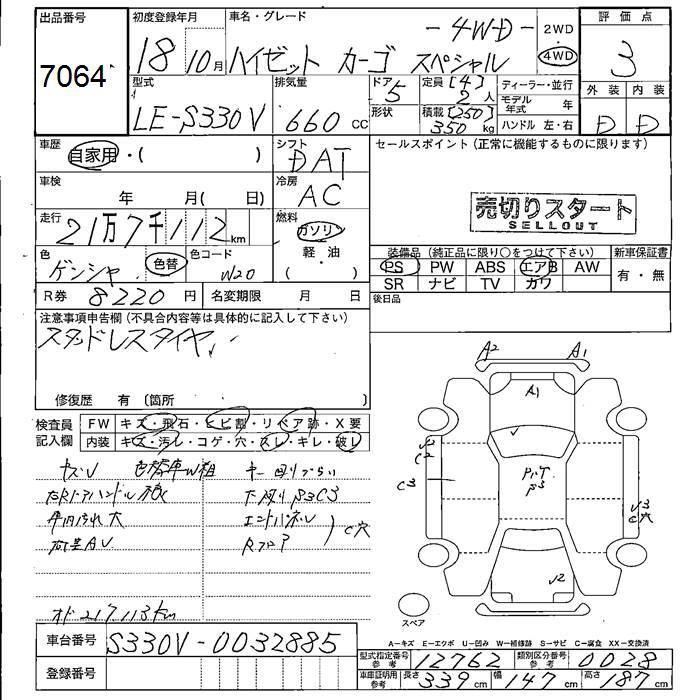 出品番号
7064
初度登録年月
18 10月
車名・グレード
-4WD-
ハイゼット カーゴ スペシャル
2WD
・
4WD
評価点
3
外装 内装
D D
型式
LE-S330V
排気量
660 cc
ドア
5
形状
定員 [4]
2 人
積載 [250]
350 kg
ディーラー・並行
モデル年式 年
ハンドル 左・右
車歴
自家用・( )
シフト
DAT
セールスポイント (正常に機能するものに限ります)
売切りスタート
SELLOUT
車検
年 月( 日)
冷房
AC
走行
21万7千112km
燃料
ガソリン
軽・油
( )
色
ゲンシャ
色替
色コード
W20
装備品 (純正品に限り○をつけて下さい)
PS PW ABS エアB AW
SR ナビ TV カワ
新車保証書
有・無
R券 8220円
名変期限 月 日
後日品
注意事項申告欄 (不具合内容等は具体的に記入して下さい)
スタッドレスタイヤ
修復歴 有 〔箇所 〕
検査員記入欄
FW キズ・飛石・ヒビ割・リペア跡・X要
内装 キズ・汚レ・コゲ・穴・スレ・キレ・破レ
下廻り S3C3
C穴
A2 A1
A1
C2
C3
P S3
C穴
スペア
A-キズ E-エクボ U-凹み W-補修跡 S-サビ C-腐食 XX-交換済
車台番号 S330V-0032885
登録番号
型式指定番号参考 12762
類別区分番号参考 0028
車庫証明用参考 長さ 339cm 幅 147cm 高さ 187cm